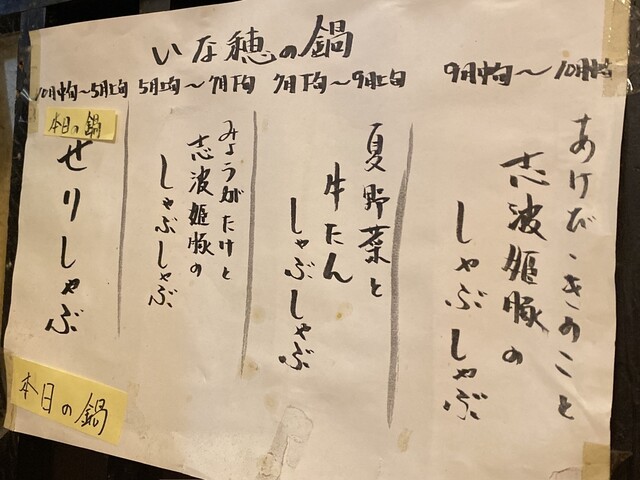 いな穂の鍋
9月中旬〜10月中旬
あけび・きのこと
志波姫豚の
しゃぶしゃぶ
7月下旬〜9月上旬
夏野菜と
牛たん
しゃぶしゃぶ
5月上旬〜7月下旬
みょうがたけと
志波姫豚の
しゃぶしゃぶ
10月中旬〜5月上旬
本日の鍋
せりしゃぶ
本日の鍋